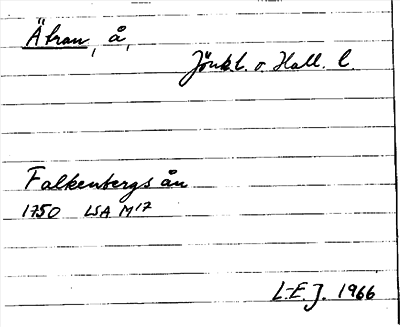 Ätran, å,
Jönk.l. o. Hall. l.
Falkenbergs ån
1750 LSA M17
L-E. J. 1966